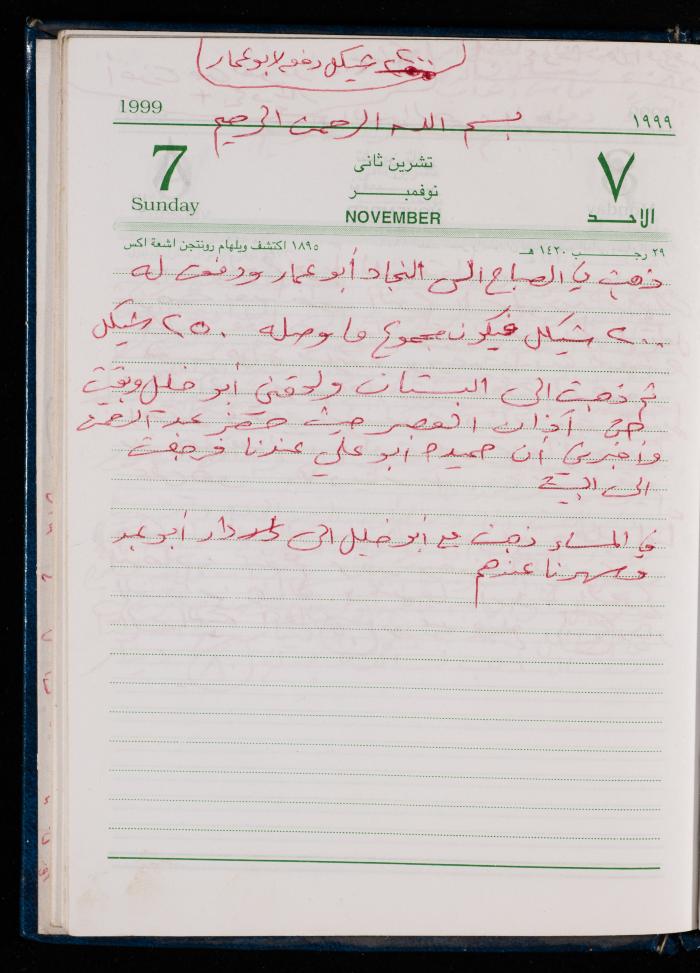 ٢٢٠٠ شيكل دفعه لابو عمار
1999
١٩٩٩
بسم الله الرحمن الرحيم
7
Sunday
تشرين ثانى
نوفمبر
NOVEMBER
٧
الاحد
٢٩ رجب ١٤٢٠ هـ
١٨٩٥ اكتشف ويلهام رونتجن اشعة اكس
ذهبت في الصباح الى النجار أبو عمار ودفعت له
٢٠٠٠ شيكل فيكون مجموع ما وصله ٢٥٠٠ شيكل
ثم ذهبت الى البستان ولحقني أبو خليل وبقيت
حتى آذان العصر حيث حضر عبد الرحمن
وأخبرني أن حميده أبو علي عندنا فرجعت
الى البيت
في المساء ذهبت مع أبو خليل الى دار أبو
وسهرنا عندهم